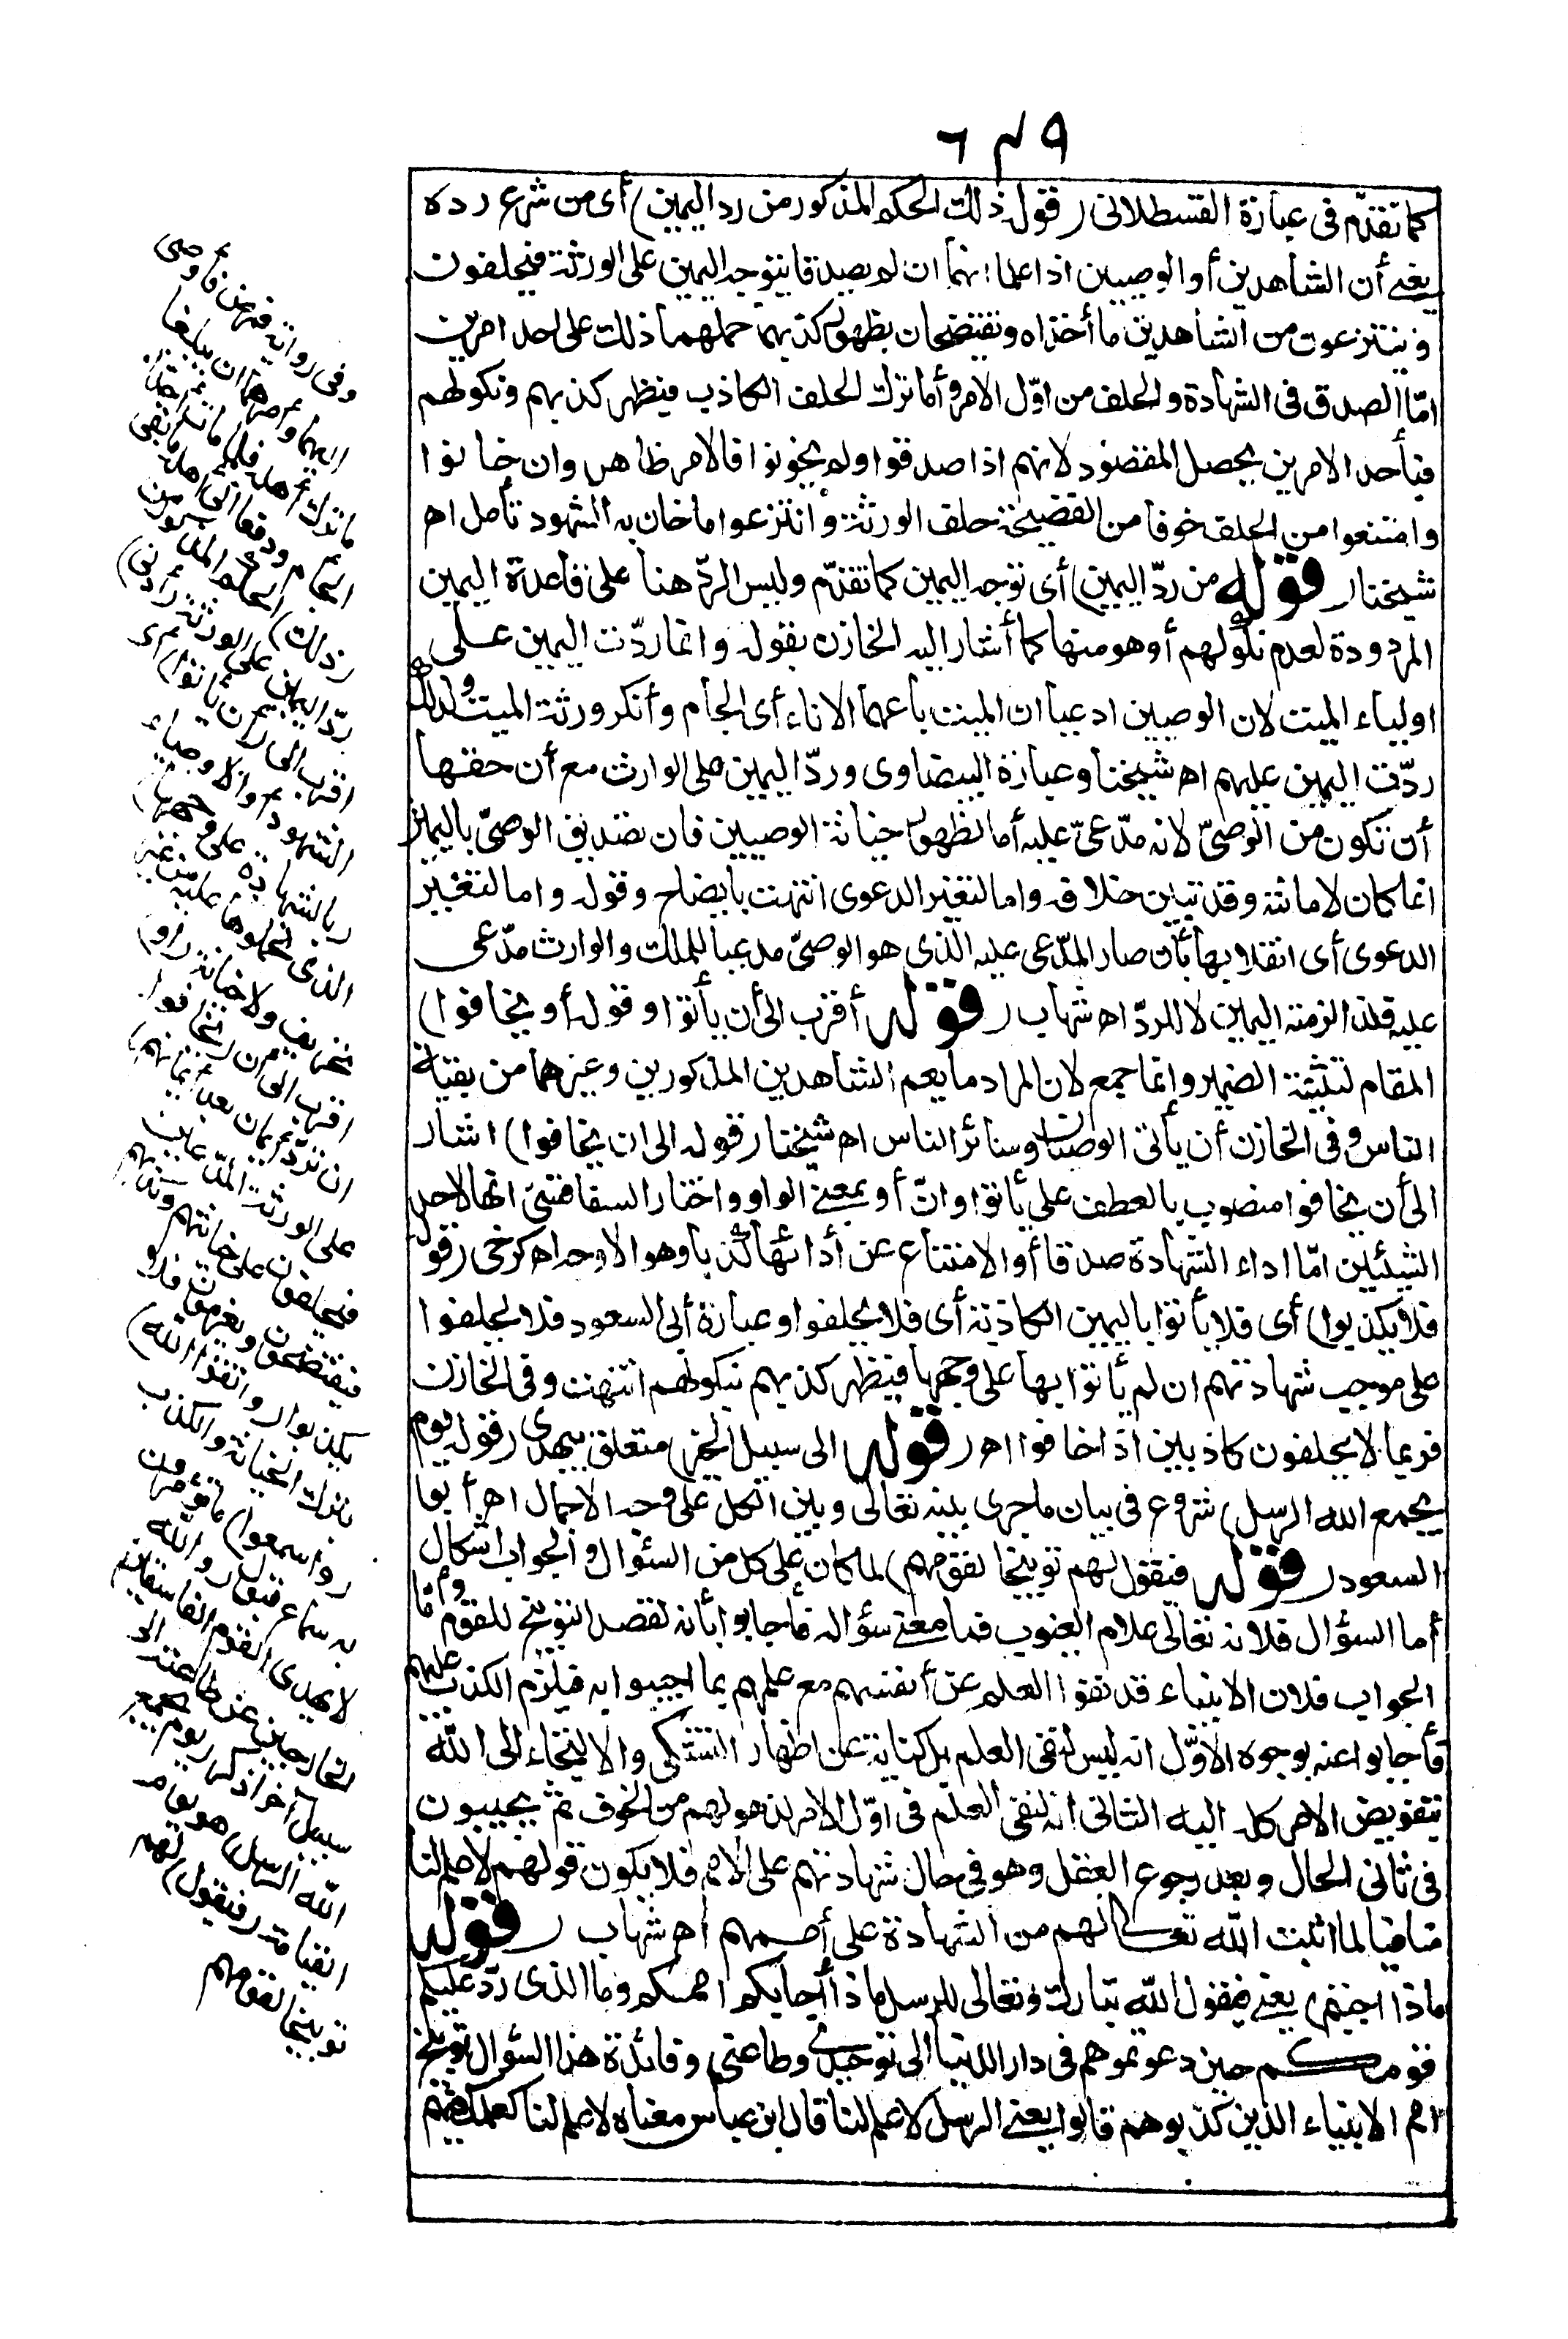 ٦٤٩
كما تقدّم فى عبارة القسطلانى (قوله ذلك الحكم المذكور من رد اليمين) أى من شرع رده
يعنى أن الشاهدين أو الوصيين اذا علما انهما ان لم يصدقا يتوجه اليمين على الورثة فيحلفون
وينتزعون من الشاهدين ما أخذاه ويفتضحان بظهور كذبهما حملهما ذلك على احد امرين
امّا الصدق فى الشهادة والحلف من اوّل الامر وأما ترك الحلف الكاذب فيظهر كذبهم ونكولهم
فبأحد الامرين يحصل المقصود لانهم اذا صدقوا ولم يخونوا فالامر ظاهر وان خانوا
وامتنعوا من الحلف خوفا من الفضيحة حلف الورثة وانتزعوا ما خان به الشهود تأمل اه
شيخنا (قوله من ردّ اليمين) أى توجه اليمين كما تقدّم وليس الردّ هنا على قاعدة اليمين
المردودة لعدم نكولهم أو هو منها كما أشار اليه الخازن بقوله وانما ردّت اليمين على
اولياء الميت لان الوصيين ادعيا ان الميت باعهما الاناء أى الجام وأنكر ورثة الميت ولذلك
ردّت اليمين عليهم اه شيخنا وعبارة البيضاوى وردّ اليمين على الوارث مع أن حقها
أن تكون من الوصىّ لانه مدّعىّ عليه أما لظهور خيانة الوصيين فان تصديق الوصىّ باليمين
انما كان لامانته وقد تبين خلافه واما لتغير الدعوى انتهت بايضاح وقوله واما لتغير
الدعوى أى انقلابها بأن صار المدّعى عليه الذى هو الوصىّ مدعيا للملك والوارث مدّعى
عليه فلذا لزمته اليمين لا للردّ اه شهاب (قوله أقرب الى أن يأتوا وقوله أو يخافوا)
المقام لتثنية الضمير وانما جمع لان المراد ما يعم الشاهدين المذكورين وغيرهما من بقية
الناس وفى الخازن أن يأتى الوصيان وسائر الناس اه شيخنا (قوله الى ان يخافوا) اشار
الى أن يخافوا منصوب بالعطف على يأتوا وانّ أو بمعنى الواو واختار السفاقسىّ انها لاحد
الشيئين امّا اداء الشهادة صدقا أو الامتناع عن أدائها كذبا وهو الاوجه اه كرخى (قوله
فلا يكذبوا) أى فلا يأتوا باليمين الكاذبة أى فلا يحلفوا وعبارة أبى السعود فلا يحلفوا
على موجب شهادتهم ان لم يأتوا بها على وجهها فيظهر كذبهم بنكولهم انتهت وفى الخازن
فربما لا يحلفون كاذبين اذا خافوا اه (قوله الى سبيل الخير) متعلق بيهدى (قوله يوم
يجمع الله الرسل) شروع فى بيان ما جرى بينه تعالى وبين الكل على وجه الاجمال اه أبو
السعود (قوله فيقول لهم توبيخا لقومهم) لما كان على كل من السئوال والجواب اشكال
أما السؤال فلانه تعالى علام الغيوب فما معنى سؤاله فأجابوا بأنه لقصد التوبيخ للقوم وأمّا
الجواب فلان الانبياء قد نفوا العلم عن أنفسهم مع علمهم بما اجيبوا به فيلزم الكذب عليهم
فأجابوا عنه بوجوه الاوّل انه ليس لنفى العلم بل كناية عن اظهار التشكى والالتجاء الى الله
بتفويض الامر كله اليه الثانى انه لنفى العلم فى اوّل الامر لذهولهم من الخوف ثم يجيبون
فى ثانى الحال وبعد رجوع العقل وهو فى حال شهادتهم على الامم فلا يكون قولهم لا علم لنا
منافيا لما اثبت الله تعالى لهم من الشهادة على أممهم اه شهاب (قوله
ماذا اجبتم) يعنى فيقول الله تبارك وتعالى للرسل ماذا أجابكم اممكم وما الذى ردّ عليكم
قومكم حين دعوتموهم فى دار الدنيا الى توحيدى وطاعتى وفائدة هذا السؤال توبيخ
امم الانبياء الذين كذبوهم قالوا يعنى الرسل لا علم لنا قال ابن عباس معناه لا علم لنا كعلمك فيهم
وفى رواية فمرض فأوصى
اليهما وأمرهما ان يبلغا
ما ترك أهله فلما مات أخذا
الجام ودفعا الى اهله ما بقى
(ذلك) الحكم المذكور من
ردّ اليمين على الورثة (أدنى)
اقرب الى (أن يأتوا) أى
الشهود أو الاوصياء
(بالشهادة على وجهها)
الذى تحملوها عليه من غير
تحريف ولا خيانة (أو)
اقرب الى أن (يخافوا
ان تردّ أيمان بعد أيمانهم)
على الورثة المدّعين
فيحلفون على خيانتهم وكذبهم
فيفتضحون ويغرمون فلا
يكذبوا (واتقوا الله)
بترك الخيانة والكذب
(واسمعوا) ما تؤمرون
به سماع قبول (والله
لا يهدى القوم الفاسقين)
الخارجين عن طاعته الى
سبيل الخير اذكر (يوم يجمع
الله الرسل) هو يوم
القيامة (فيقول) لهم
توبيخا لقومهم